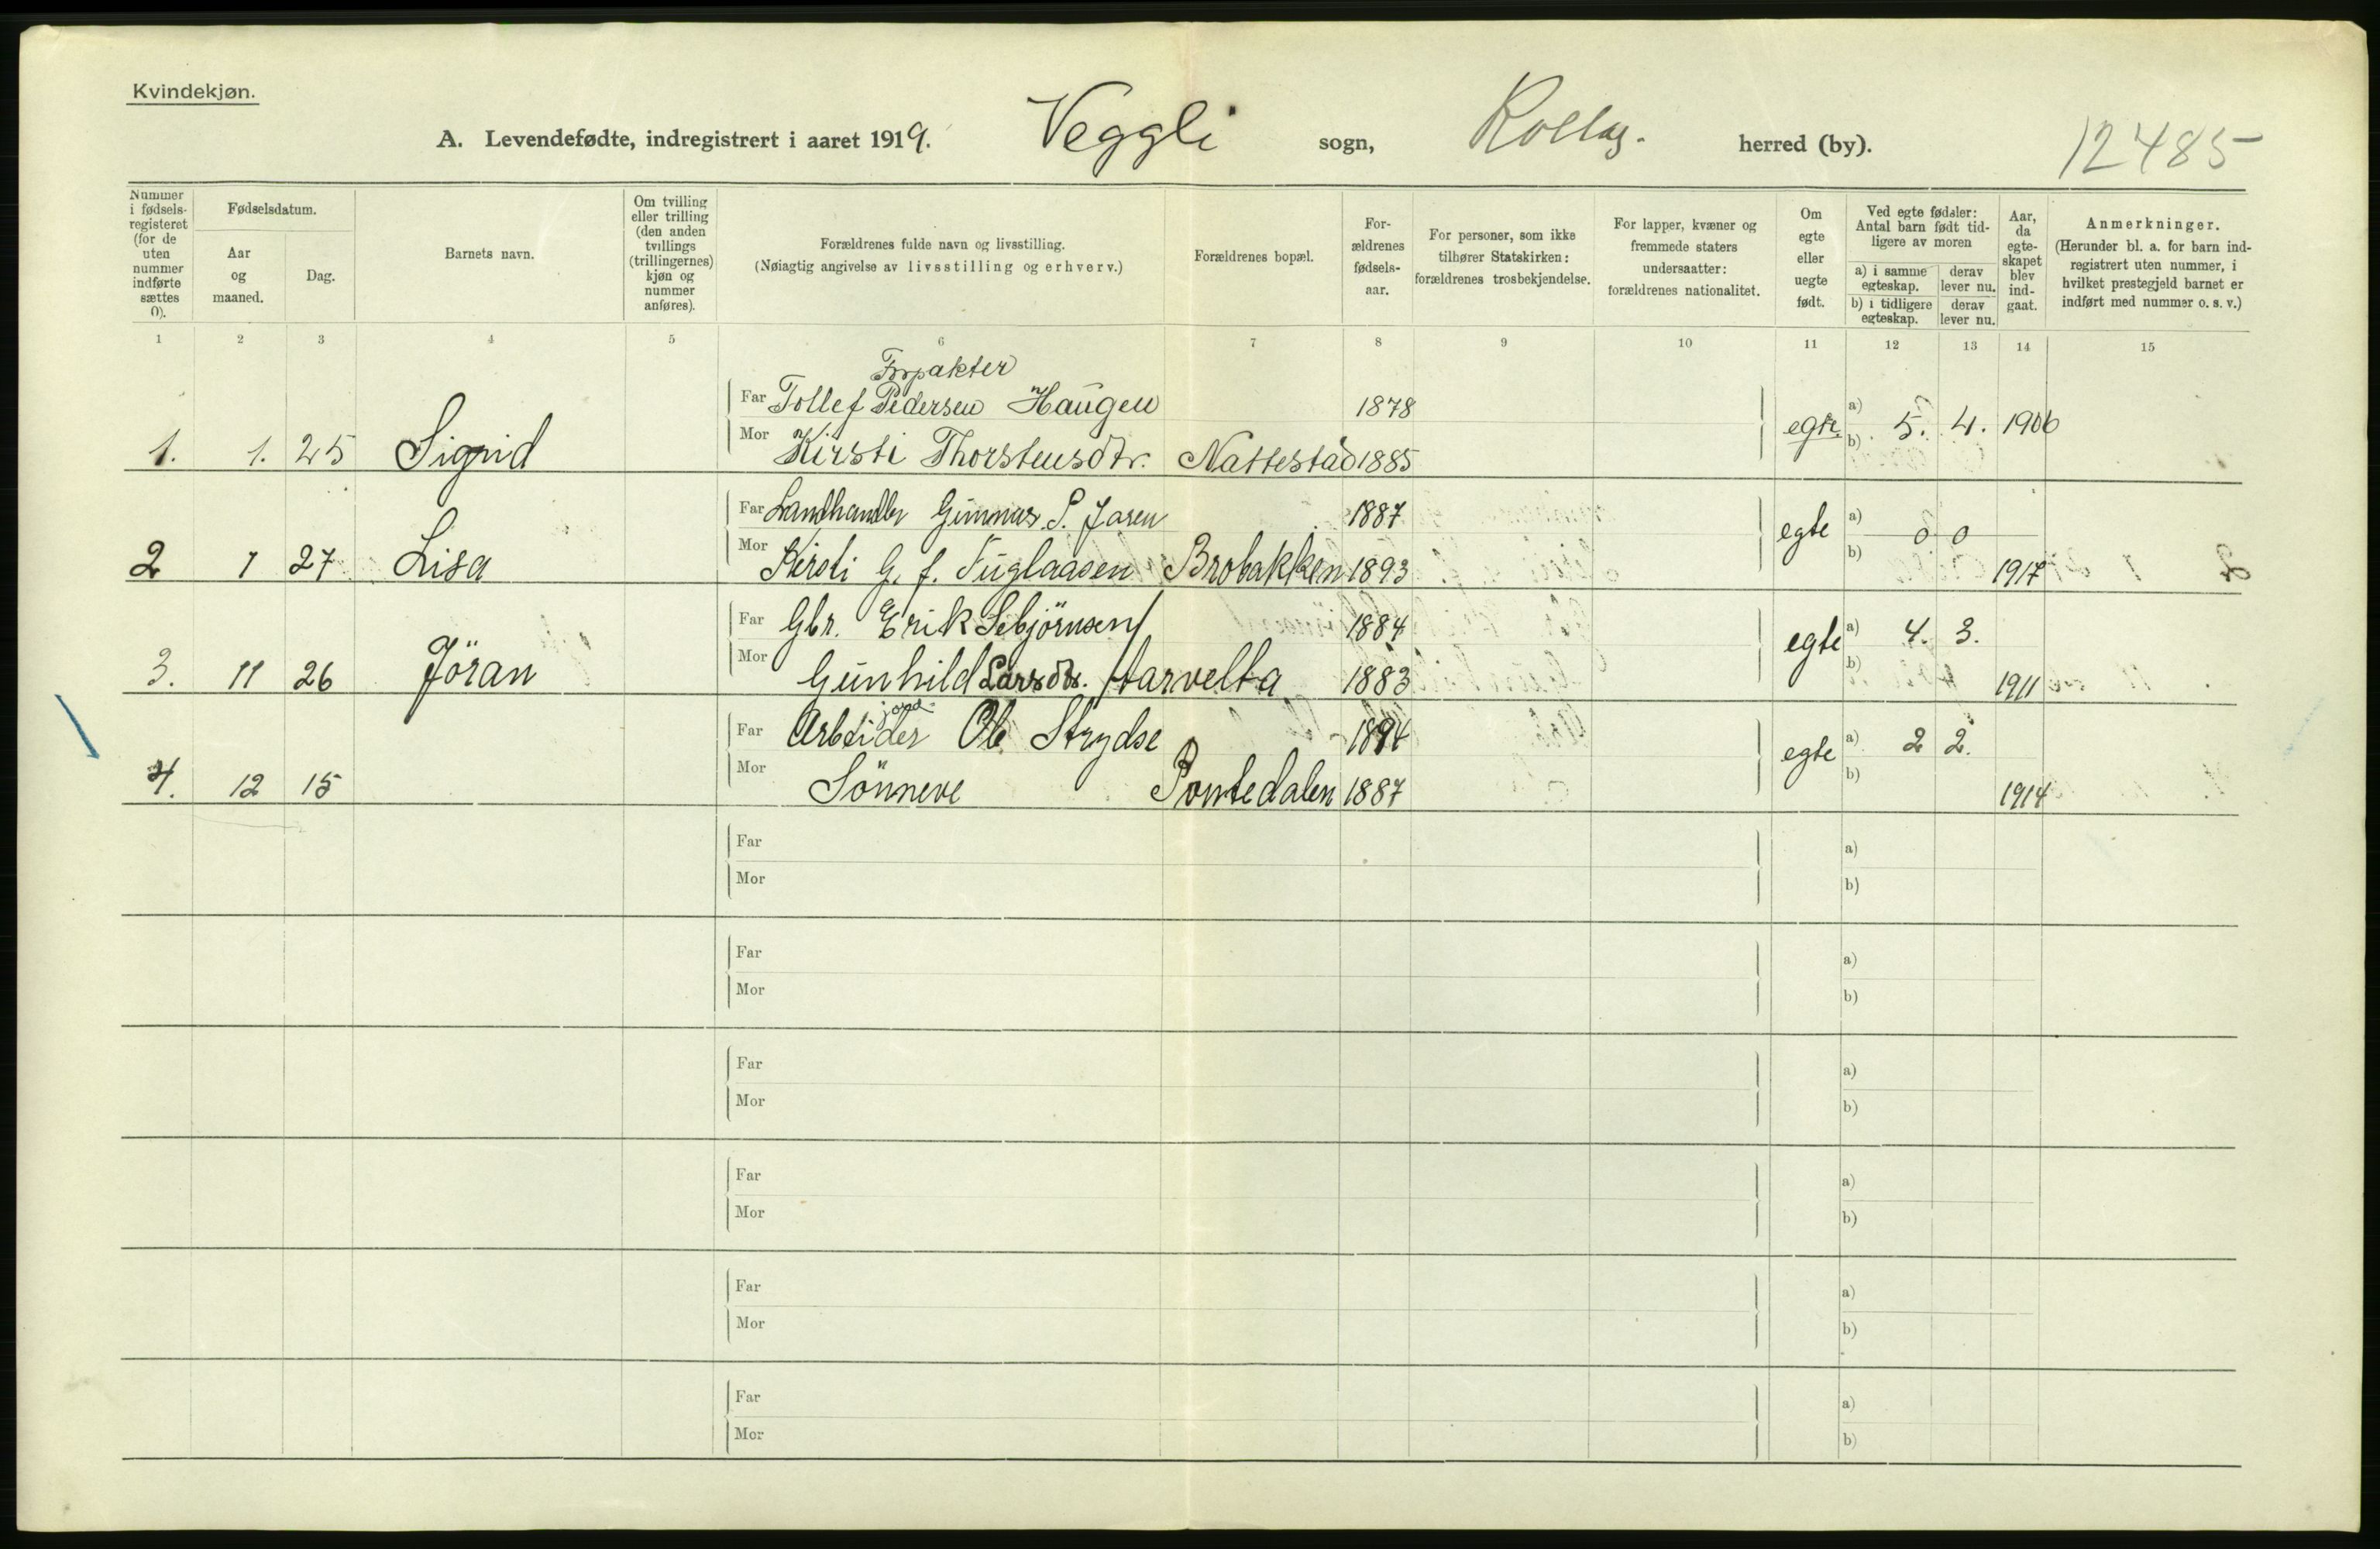 Kvindekjøn.
A. Levendefødte, indregistrert i aaret 1919. Veggli sogn, Rollag. herred (by). 12485
Nummer i fødsels-registeret (for de uten nummer indførte sættes 0).
Fødselsdatum.
Aar og maaned.
Dag.
Barnets navn.
Om tvilling eller trilling (den anden tvillings (trillingernes) kjøn og nummer anføres).
Forældrenes fulde navn og livsstilling.
(Nøiagtig angivelse av livsstilling og erhverv.)
Forældrenes bopæl.
For-ældrenes fødsels-aar.
For personer, som ikke tilhører Statskirken: forældrenes trosbekjendelse.
For lapper, kvæner og fremmede staters undersaatter: forældrenes nationalitet.
Om egte eller uegte født.
Ved egte fødsler: Antal barn født tid-ligere av moren
a) i samme egteskap. derav lever nu.
b) i tidligere egteskap. derav lever nu.
Aar, da egte-skapet blev ind-gaat.
Anmerkninger.
(Herunder bl. a. for barn ind-registrert uten nummer, i hvilket prestegjeld barnet er indført med nummer o. s. v.)
1 2 3 4 5 6 7 8 9 10 11 12 13 14 15
Forpakter
Far Tollef Pedersen Haugen 1878 egte. a) 5. 4. 1906
1. 1. 25 Sigrid Mor Kirsti Thorstensdtr. Nattestad 1885 b)
Far Landhandler Gunnar P. Jaren 1887 egte a) 0 0
2 1 27 Lisa Mor Kirsti G. f. Fuglaasen Brobakken 1893 b) 1917
Far Gbr. Erik Sebjörnsen 1884 egte a) 4. 3.
3. 11 26 Jöran Mor Gunhild Larsdtr. Harvelta 1883 b) 1911
jord
Far Arbeider Ole Strydse 1894 egte a) 2 2.
4. 12 15 Mor Sönneve Pontedalen 1887 b) 1914
Far a)
Mor b)
Far a)
Mor b)
Far a)
Mor b)
Far a)
Mor b)
Far a)
Mor b)
Far a)
Mor b)